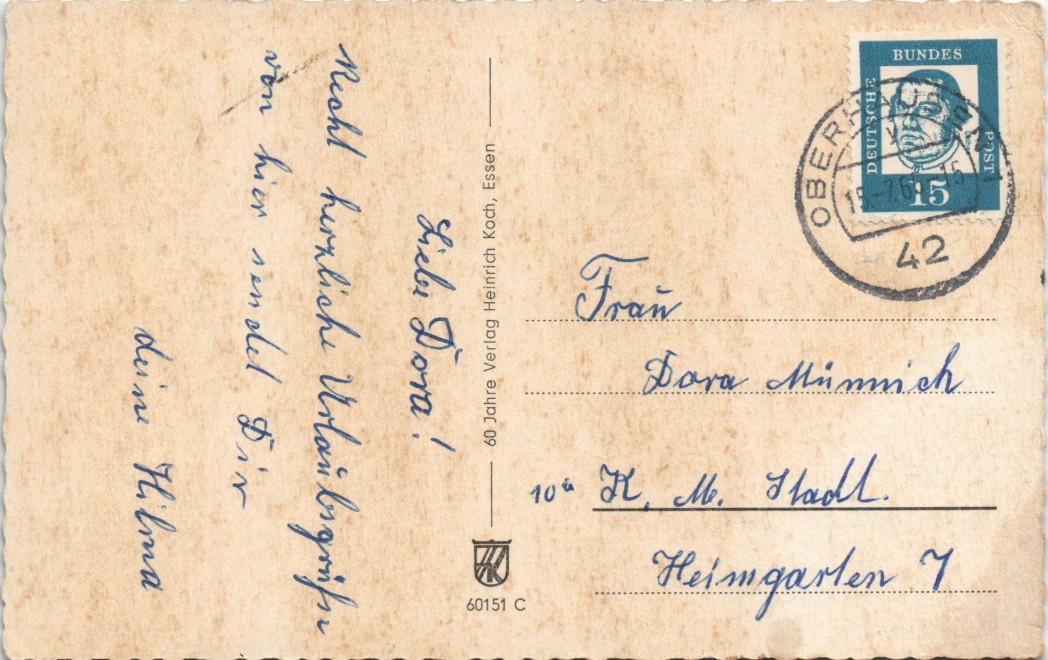 Liebe Dora!
Recht herzliche Urlaubsgrüße
von hier sendet Dir
deine Hilma
60 Jahre Verlag Heinrich Koch, Essen
HK
60151 C
DEUTSCHE
BUNDES
POST
15
OBERHAUSEN
42
Frau
Dora Münnich
10a K. M. Stadt.
Heimgarten 7